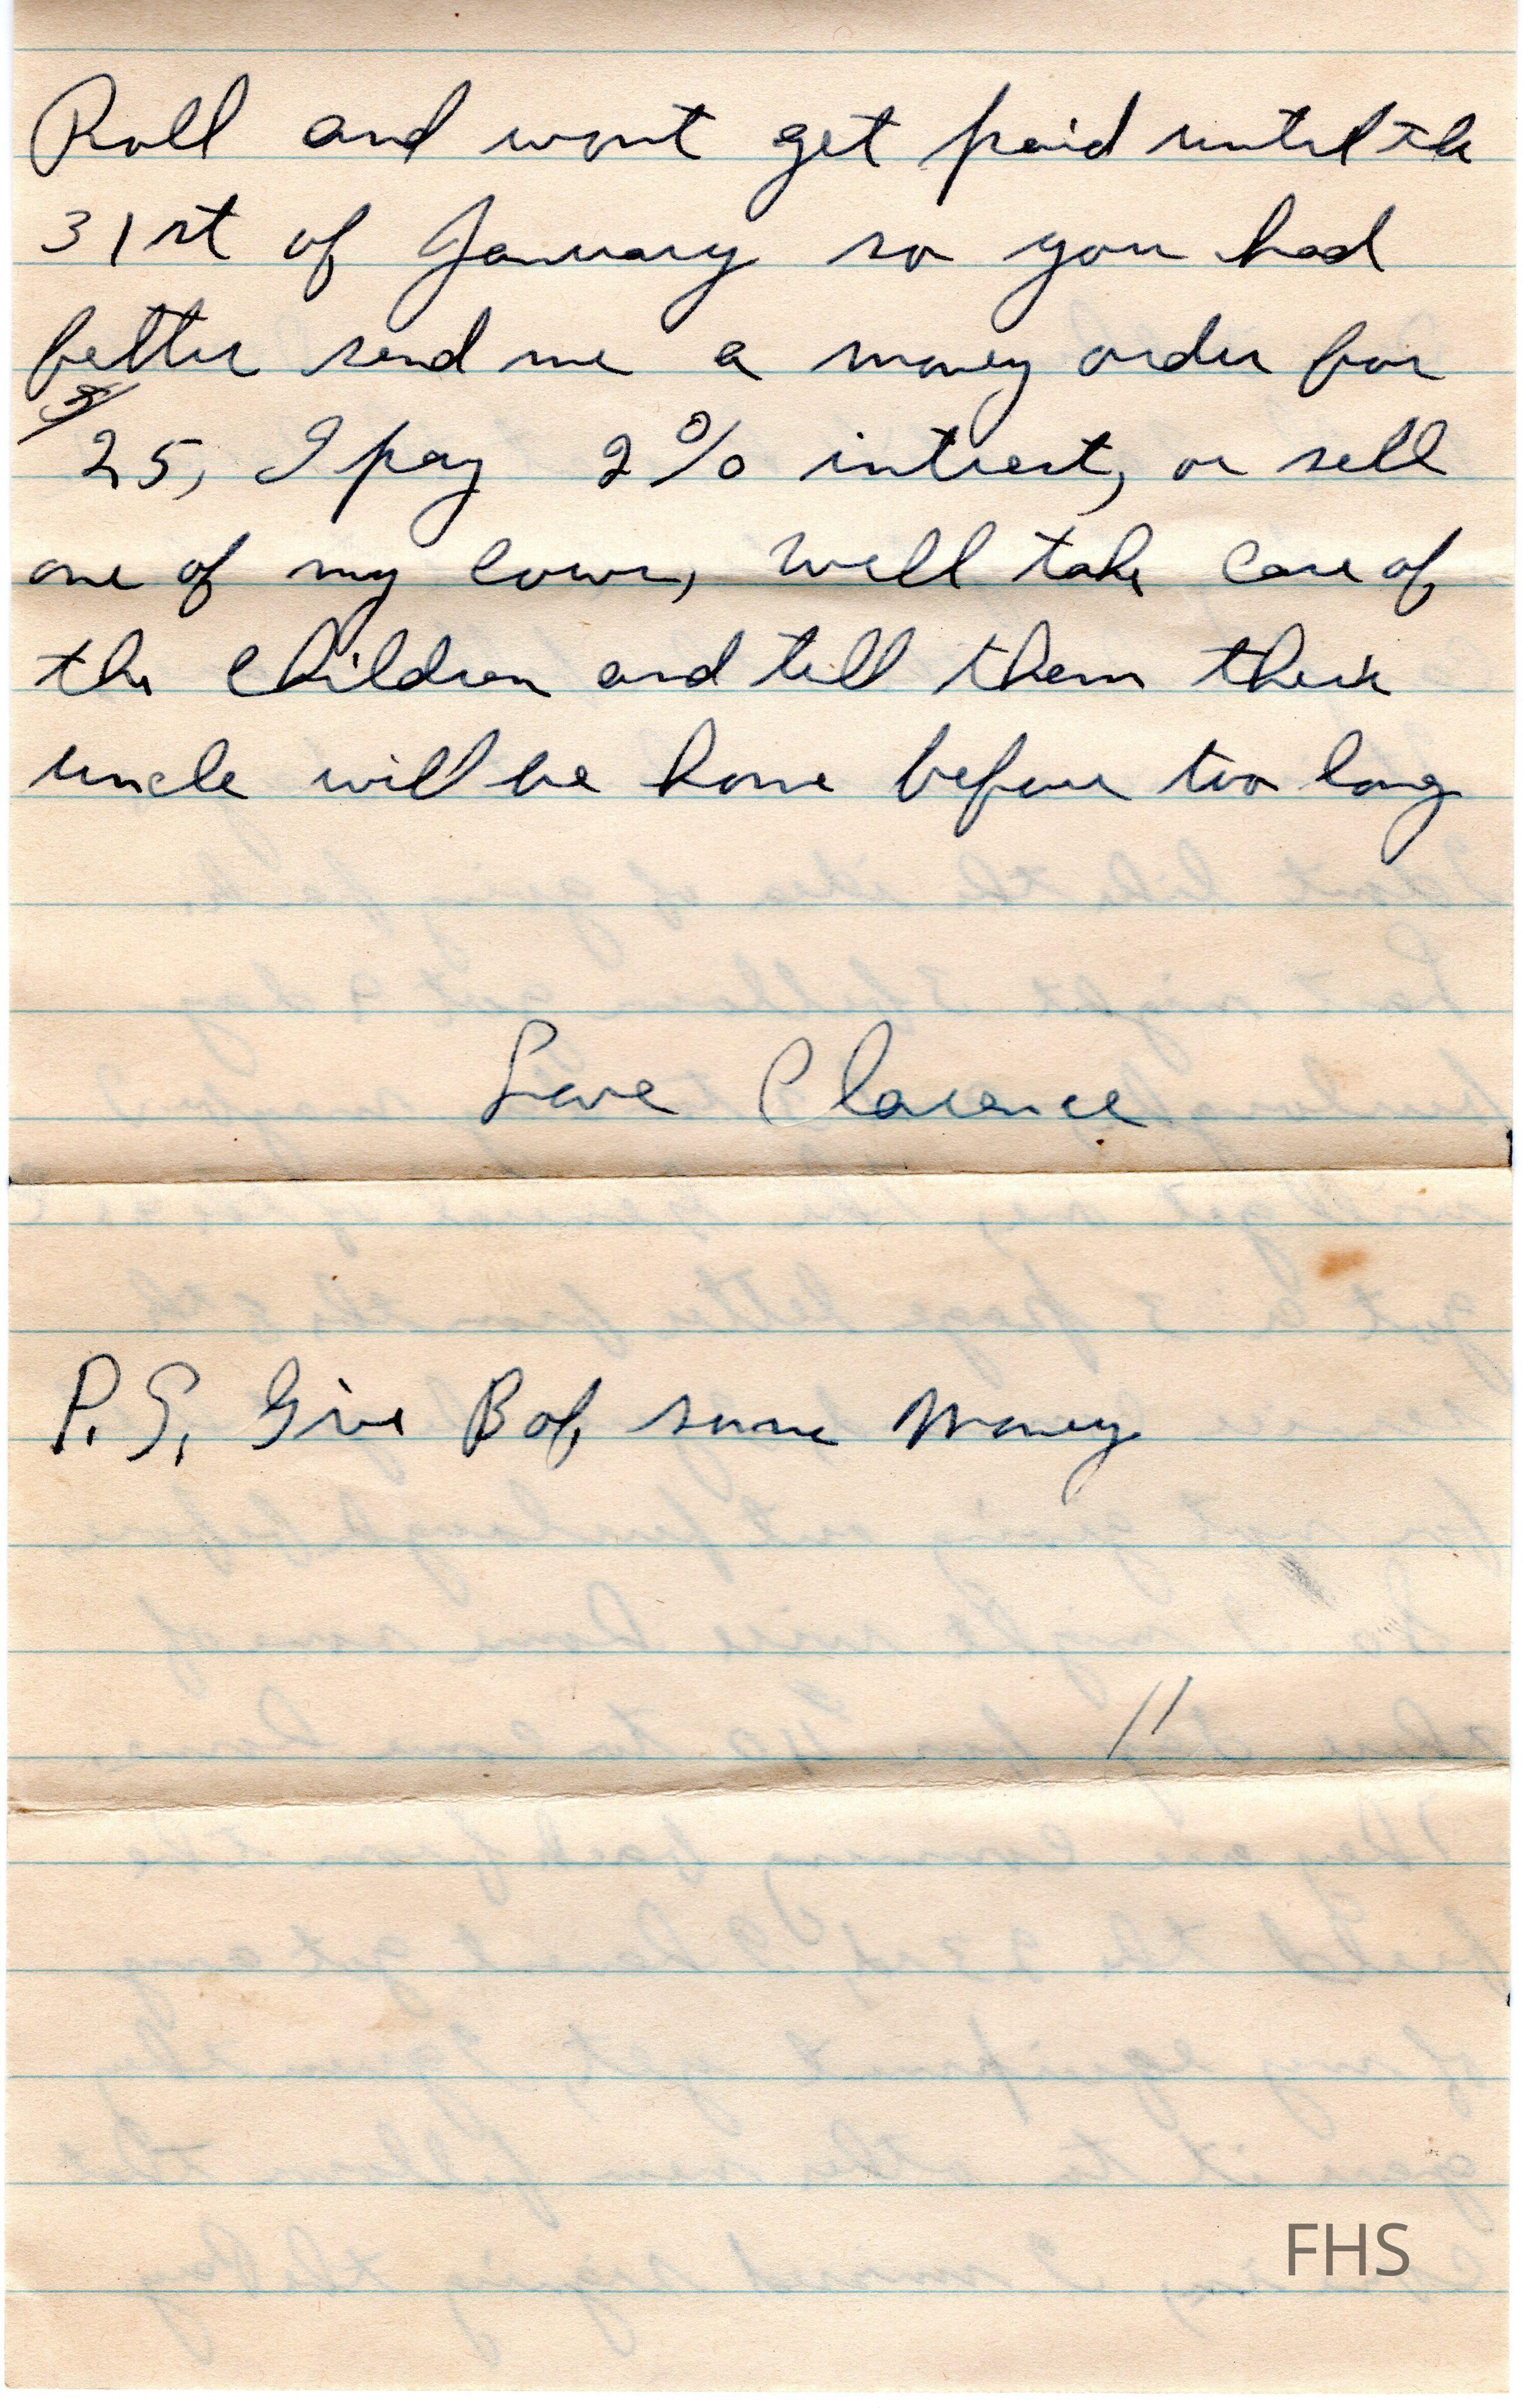 Roll and wont get paid until the
31st of January so you had
better send me a money order for
$25, I pay 2% intrest, or sell
one of my cows, Well take care of
the children and tell them their
uncle will be home before too long
Love Clarence
P.S. Give Bob some money
11
FHS